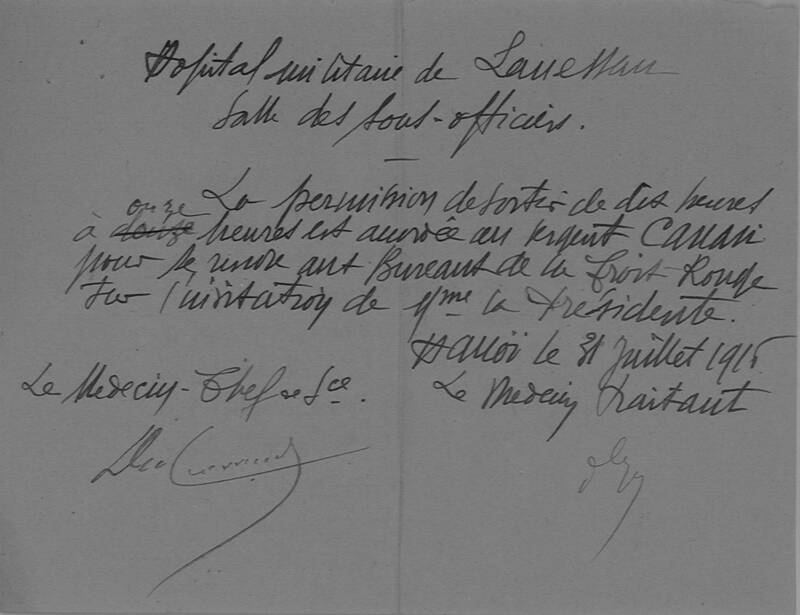 Hopital militaire de Lanessan
Salle des Sous-officiers.
La permission de sortir de dix heures
onze
à douze heures est accordée au sergent
pour se rendre aux Bureaux de la Croix-Rouge
sur l'invitation de Mme la Présidente.
Hanoï le 31 Juillet 1915
Le Medecin-Chef de Sce.
Le Medecin traitant